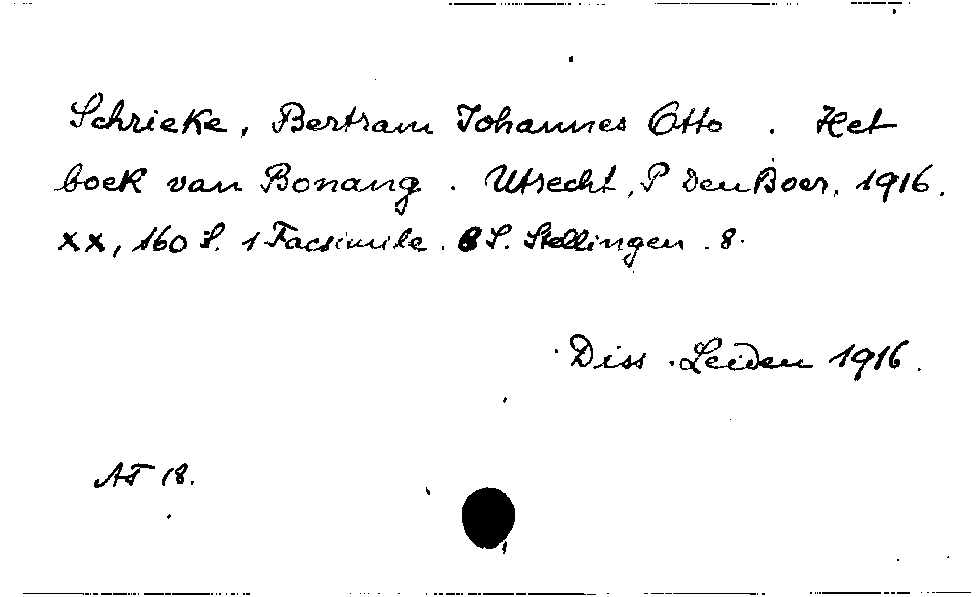 Schrieke, Bertram Johannes Otto. Het
boek van Bonang. Utrecht, P Den Boer, 1916.
XX, 160 S. 1 Facsimile. 6 S. Stellingen. 8.
Diss. Leiden 1916.
AT 18.